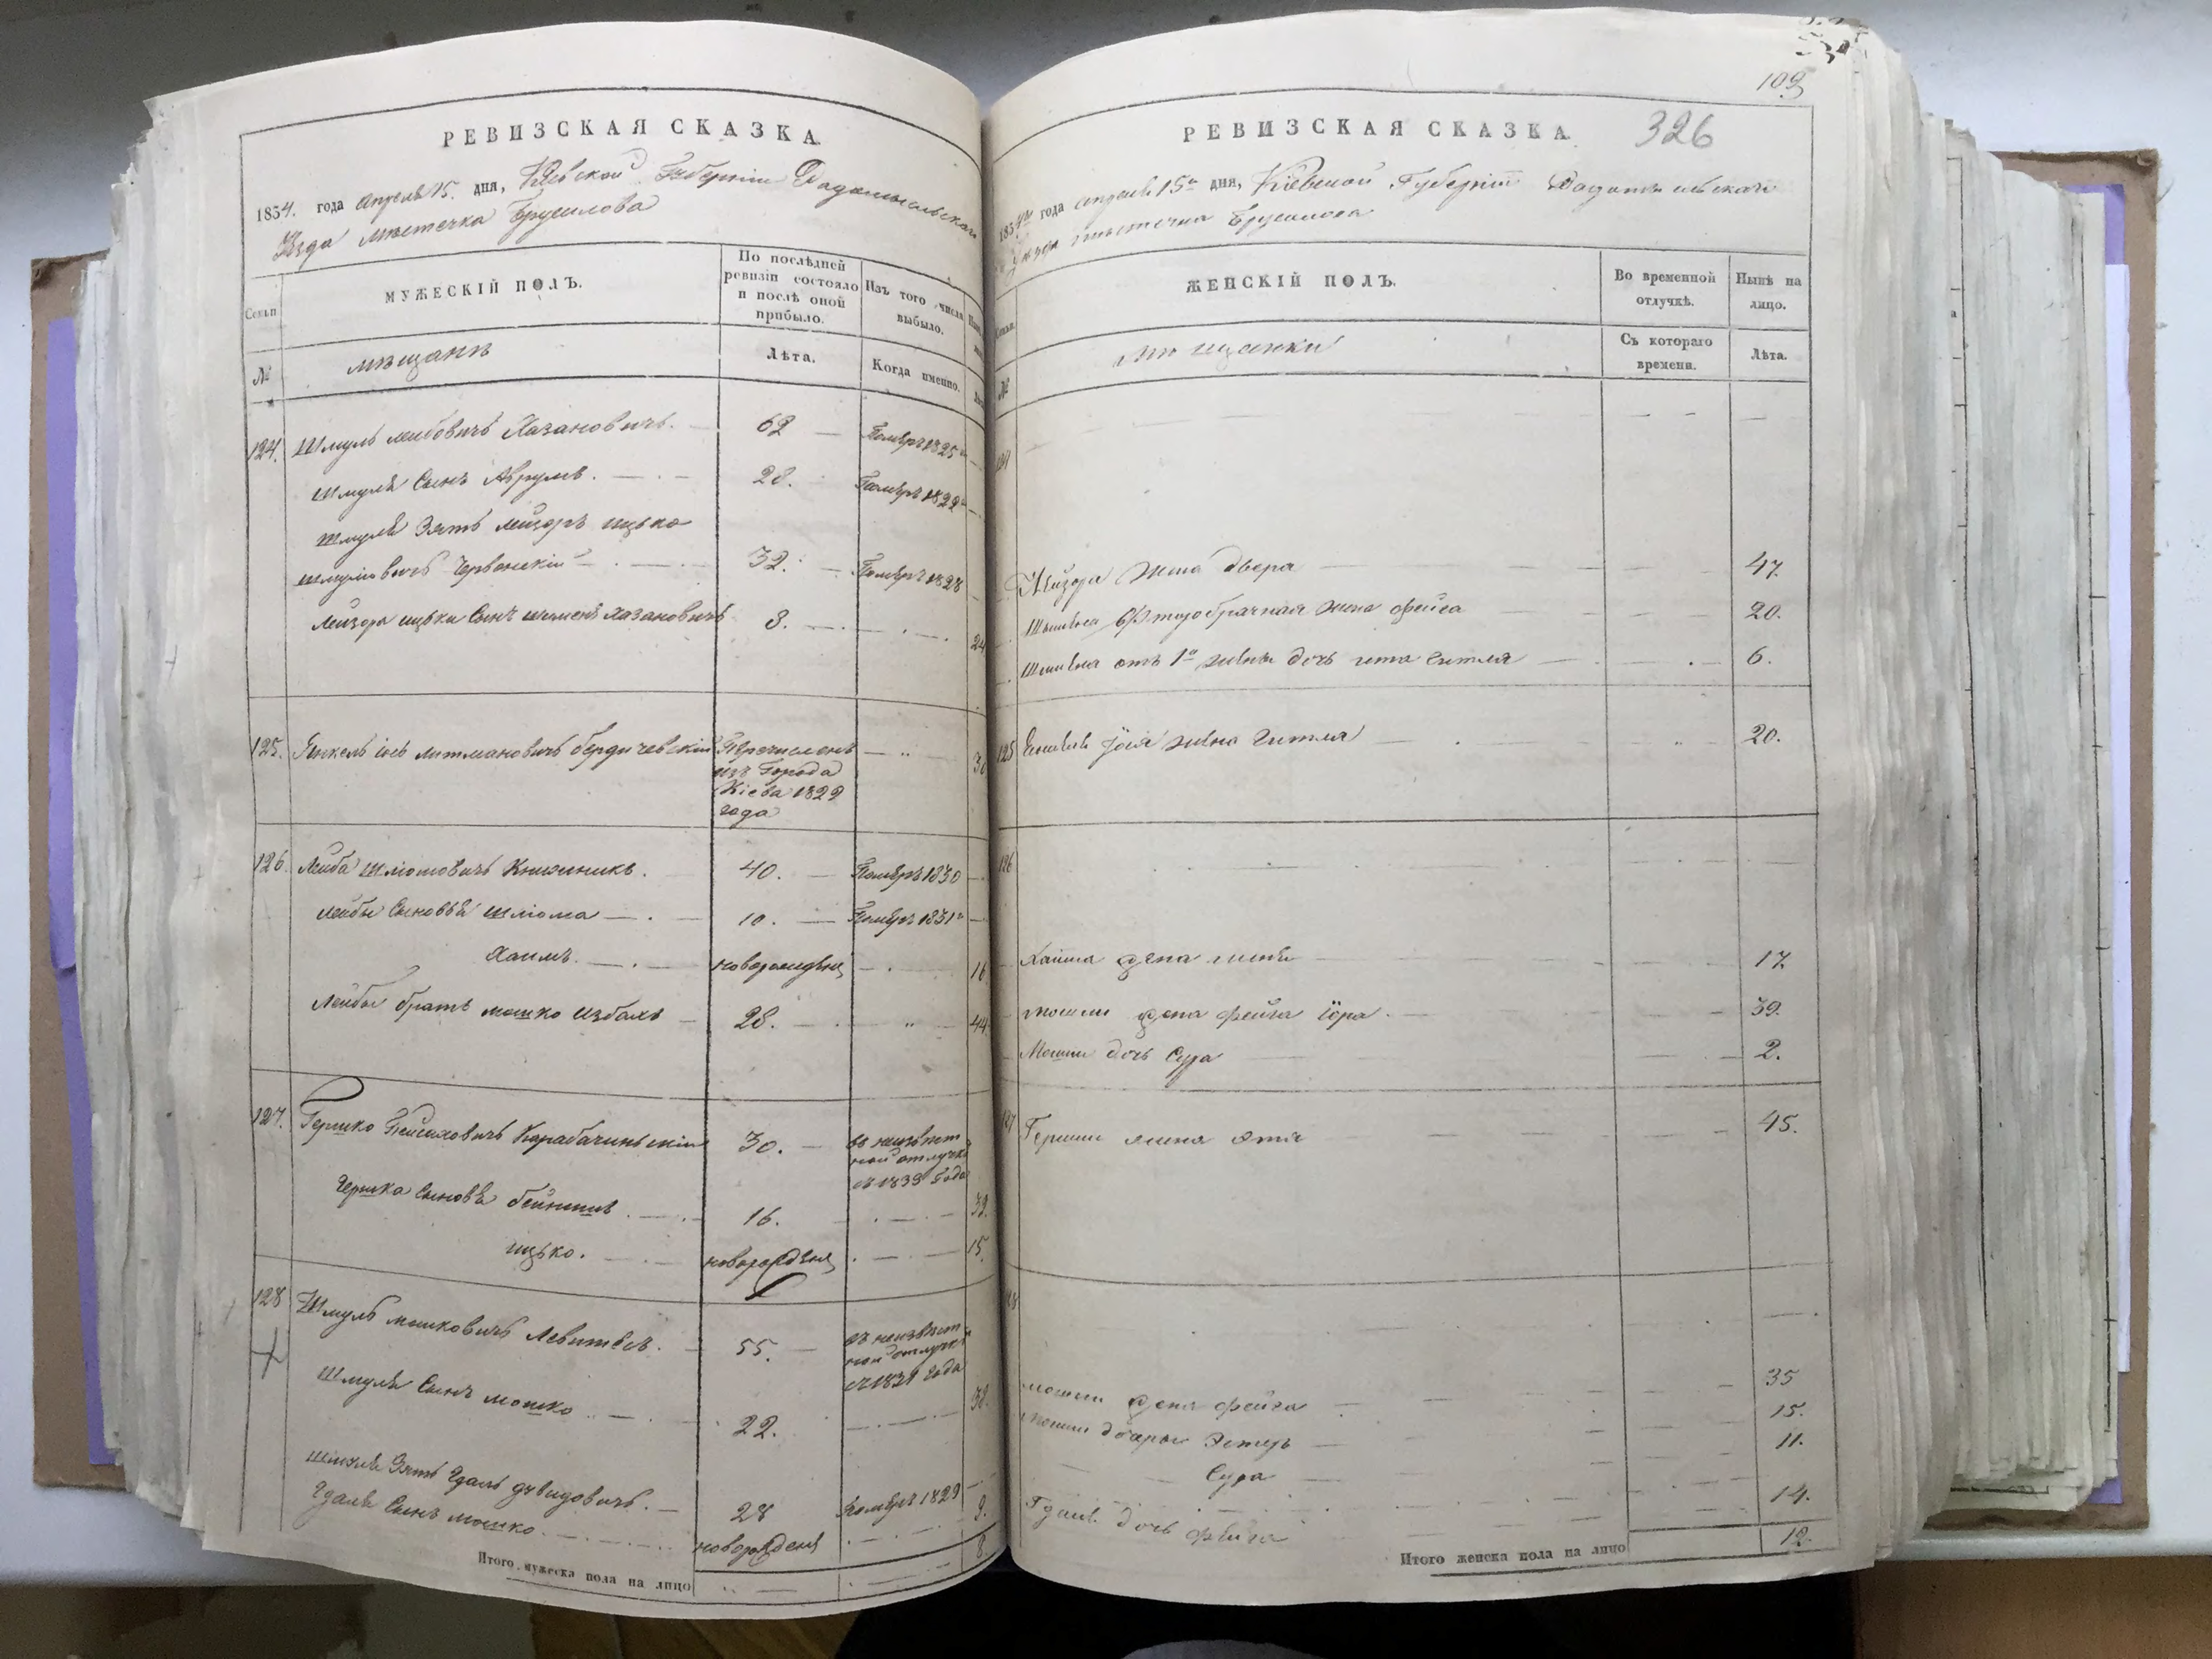 РЕВИЗСКАЯ СКАЗКА.
1834. года Апреля 15. дня, Кіевской Губерніи Радомысльскаго
Уезда местечка Брусилова
Семьи
МУЖЕСКІЙ ПОЛЪ.
По послѣдней ревизіи состояло и послѣ оной прибыло.
Изъ того числа выбыло.
№
мещане
Лѣта.
Когда именно.
124. Шмуль Лейбовичъ Хазановичъ. 62 Померъ 1825
Шмуля Сынъ Аврумъ. 28. Померъ 1822
Шмуля Зять Лейзоръ ицько
Шмулiовичъ Червонскій 32. Померъ 1828
Лейзора ицьки Сынъ Хазановичъ 8. 24
125. Янкель iось литмановичъ бердичевскій Перечисленъ
изъ Города
Кіева 1829
года
126. Лейба Шліомовичъ Книжникъ. 40. Померъ 1830
Лейбы Сыновья Шліома 10. Померъ 1831
Хаимъ. новорожденъ 16
Лейбы братъ мошко 28. 44
127. Гершко Пейсаховичъ Карабачинскій 30. въ неизвест
ной отлучке
съ 1833 года
Гершка Сыновья бейнишъ. 16. 32.
ицько. новорожденъ 15.
128 Шмуль мошковичъ Левитесъ. 55. въ неизвест
ной отлучке
Шмуля Сынъ мошко 22. 38.
Шмуля Зять Гдаль давидовичъ. 28 Померъ 1829
Гдаля Сынъ мошко. новорожденъ 9.
Итого мужеска пола на лицо 8.
109
326
РЕВИЗСКАЯ СКАЗКА.
1834 года апреля 15 дня, Кіевской Губерніи Радомысльскаго
Уезда местечка Брусилова
Семьи.
ЖЕНСКІЙ ПОЛЪ.
Во временной отлучкѣ.
Нынѣ на лицо.
№
мещанки
Съ котораго времени.
Лѣта.
124
Лейзора жена двера 47.
второбрачная жена фейга 20.
отъ 1й жены дочь гитля 6.
125 жена гитля 20.
126
Хаима жена 17.
мошки жена фейга 39.
Мошки дочь Сура 2.
127 Гершки жена 45.
128
мошки жена фейга 35
мошки дочери Эстеръ 15.
Сура 11.
Гдаля дочь фейга 14.
Итого женска пола на лицо 12.